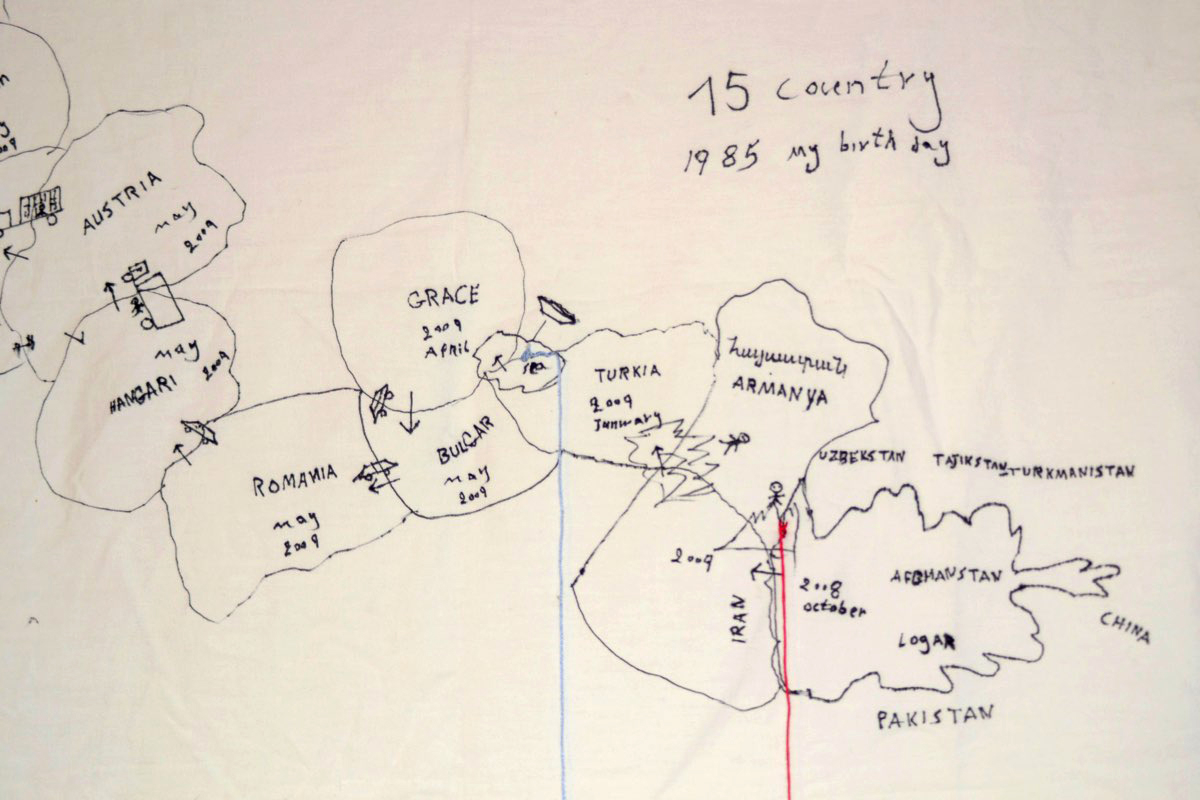 15 couentry
1985 my birth day
AUSTRIA
may
2009
GRACE
2009
April
sea
TURKIA
2009
Junwary
Հայաստան
ARMANYA
may
2009
HANGARI
BULGAR
may
2009
ROMANIA
may
2009
UZBEKSTAN
TAJIKSTAN
TURKMANISTAN
2009
IRAN
2008
october
AFGHANSTAN
LOGAR
CHINA
PAKISTAN